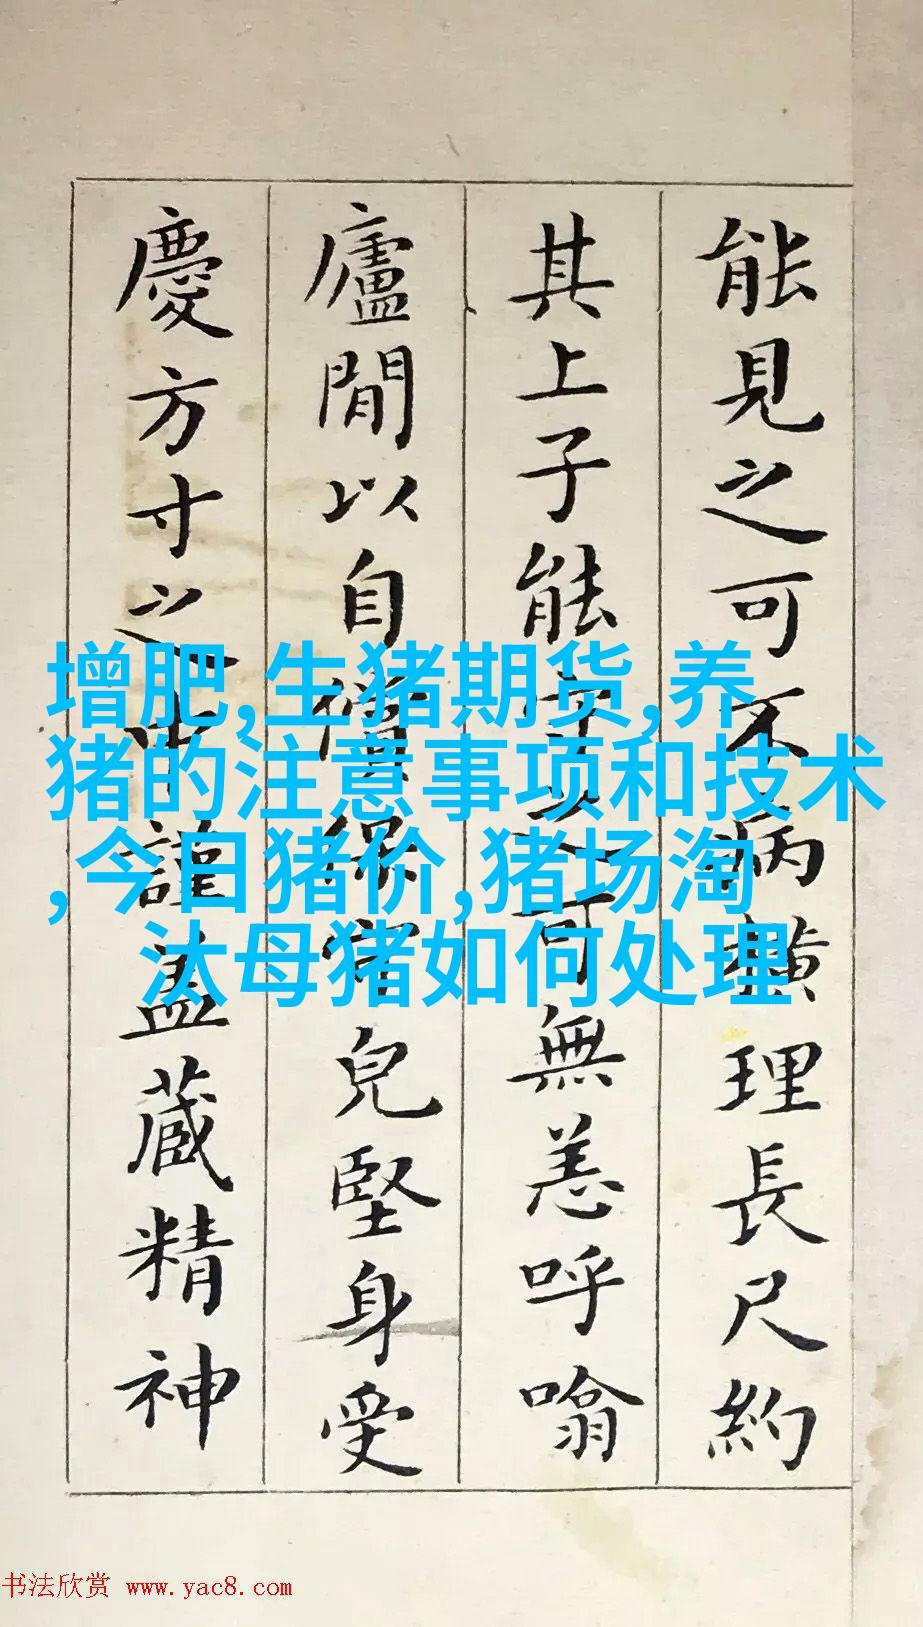 能見之可不病橫理長尺約
其上子能守之可無恙呼噏
廬閒以自償保守兒堅身受
慶方寸之中謹盖藏精神
增肥,生猪期货,养
猪的注意事项和技术
,今日猪价,猪场淘
汰母猪如何处理
书法欣赏 www.yac8.com